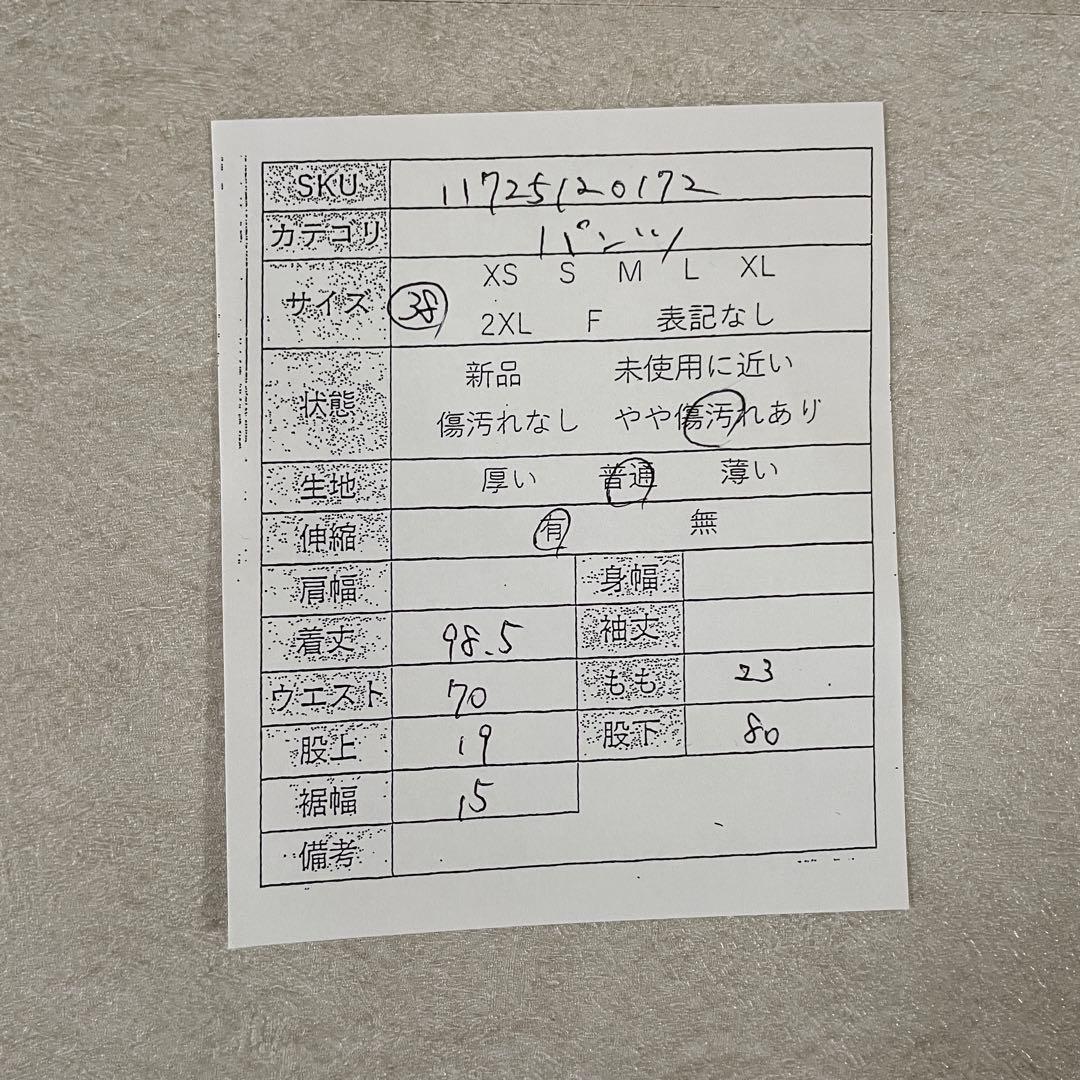 SKU 11725120172
カテゴリ パンツ
サイズ 38 XS S M L XL
2XL F 表記なし
状態 新品 未使用に近い
傷汚れなし やや傷汚れあり
生地 厚い 普通 薄い
伸縮 有 無
肩幅 身幅
着丈 98.5 袖丈
ウエスト 70 もも 23
股上 19 股下 80
裾幅 15
備考